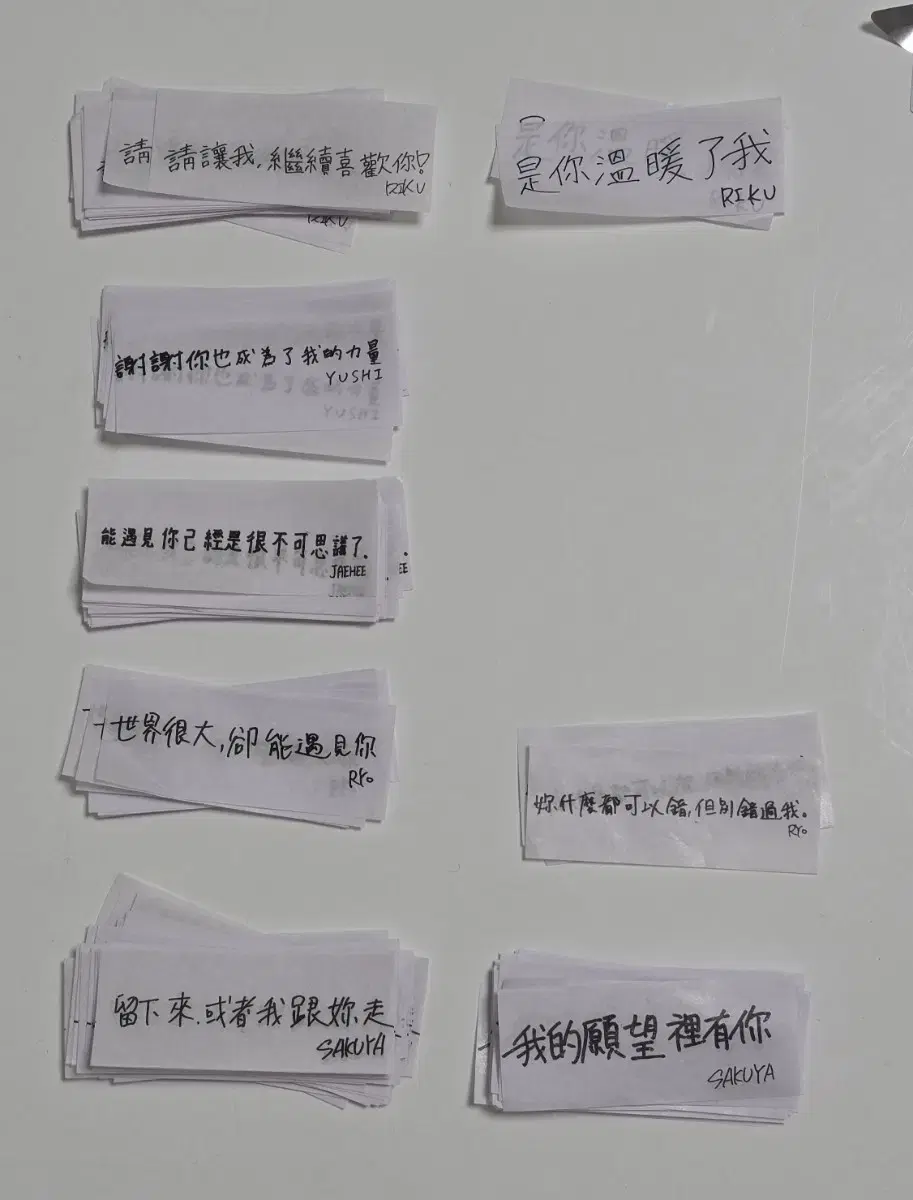 請 請讓我,繼續喜歡你!
RIKU
RIKU
是你溫暖
是你溫暖了我
RIKU
謝謝你也成為了我的力量
YUSHI
謝謝你也成為了我的力量
YUSHI
能遇見你已經是很不可思議了.
JAEHEE
EE
世界很大,卻能遇見你
RYO
妳什麼都可以錯,但別錯過我。
RYO
留下來.或者我跟妳走
SAKUYA
我的願望裡有你
SAKUYA